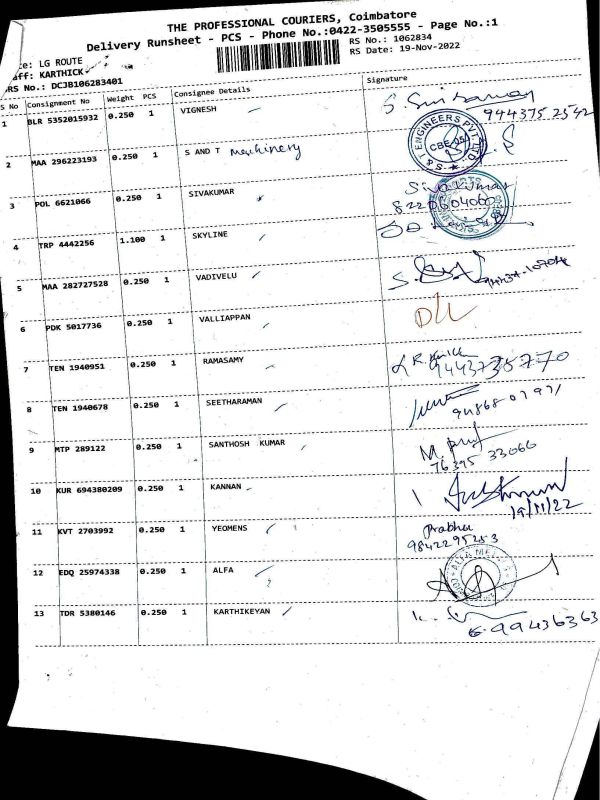 THE PROFESSIONAL COURIERS, Coimbatore
Delivery Runsheet - PCS - Phone No.:0422-3505555 - Page No.:1
RS No.: 1062834
RS Date: 19-Nov-2022
ce: LG ROUTE
aff: KARTHICK
RS No.: DCJB106283401
S No Consignment No Weight PCS Consignee Details Signature
1 BLR 5352015932 0.250 1 VIGNESH
944375 2542
2 MAA 296223193 0.250 1 S AND T Machinery
ENGINEERS PVT LTD
CBE-05
3 POL 6621066 0.250 1 SIVAKUMAR Sivakumar
4 TRP 4442256 1.100 1 SKYLINE
5 MAA 282727528 0.250 1 VADIVELU
6 PDK 5017736 0.250 1 VALLIAPPAN
7 TEN 1940951 0.250 1 RAMASAMY
9443735770
8 TEN 1940678 0.250 1 SEETHARAMAN
9 MTP 289122 0.250 1 SANTHOSH KUMAR
76395 33066
10 KUR 694380209 0.250 1 KANNAN
19/11/22
11 KVT 2703992 0.250 1 YEOMENS Prabhu
9842295253
12 EDQ 25974338 0.250 1 ALFA
13 TDR 5380146 0.250 1 KARTHIKEYAN
99436363